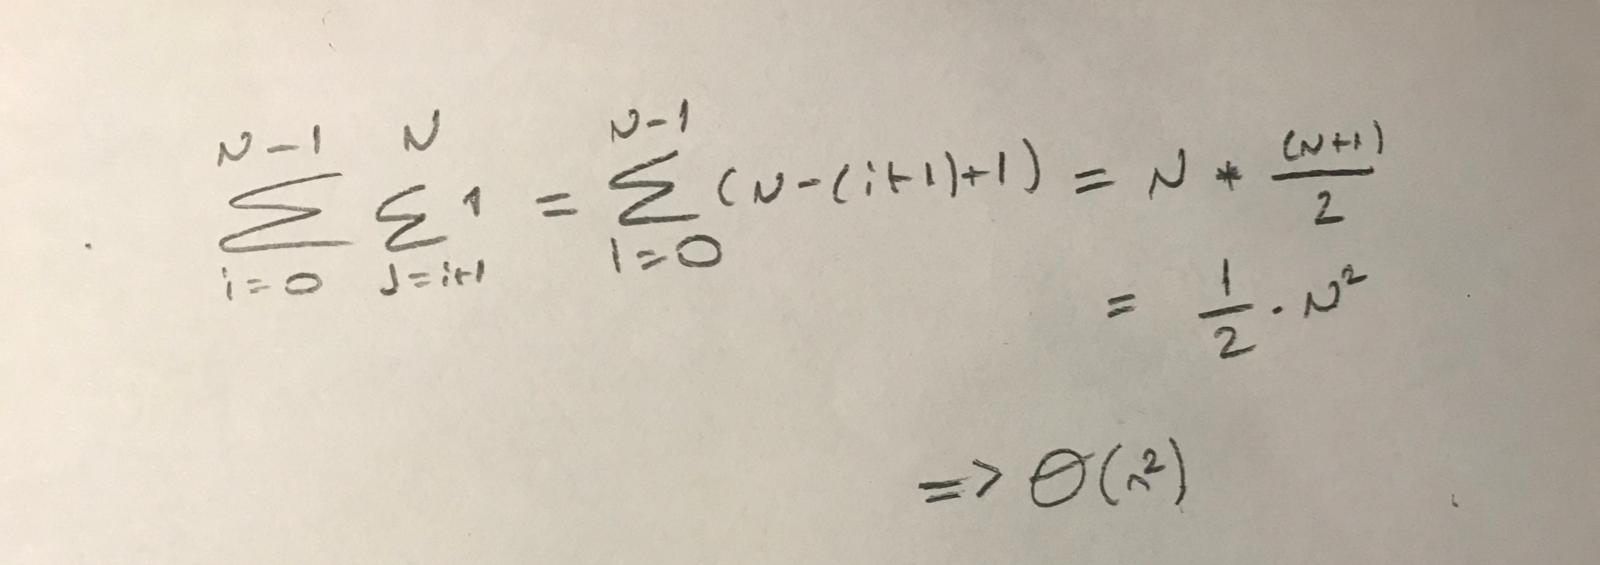 \sum_{i=0}^{N-1} \sum_{j=i+1}^{N} 1 = \sum_{i=0}^{N-1} (N-(i+1)+1) = N * \frac{(N+1)}{2}
= \frac{1}{2} \cdot N^2
=> \Theta(n^2)